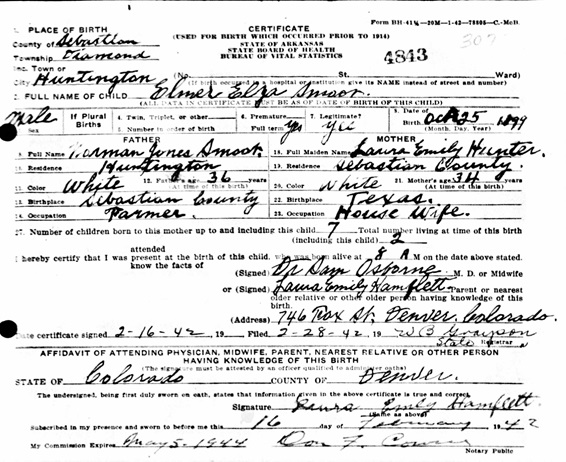 Form BH-41½—20M—1-43—78805—C.-McB.
CERTIFICATE
(USED FOR BIRTH WHICH OCCURRED PRIOR TO 1914)
STATE OF ARKANSAS
STATE BOARD OF HEALTH
BUREAU OF VITAL STATISTICS
4843
307
1. PLACE OF BIRTH
County of Sebastian
Township Diamond
Inc. Town or
City Huntington (No. St. Ward)
(If birth occurred in a hospital or institution give its NAME instead of street and number)
2. FULL NAME OF CHILD Elmer Elza Smoot
(ALL DATA IN CERTIFICATE MUST BE AS OF DATE OF BIRTH OF THIS CHILD)
Male
Sex
If Plural Births
4. Twin, Triplet, or other
5. Number in order of birth
6. Premature
Full term yes
7. Legitimate?
yes
8. Date of Birth Oct 25 1899
(Month, Day, Year)
FATHER
9. Full Name Norman Jones Smoot
10. Residence Huntington
11. Color White 12. Father's age 36
(At time of this birth)
13. Birthplace Sebastian County
14. Occupation Farmer.
MOTHER
18. Full Maiden Laura Emily Hunter.
19. Residence Sebastian County.
20. Color White 21. Mother's age 34
(At time of this birth)
22. Birthplace Texas.
23. Occupation House Wife.
27. Number of children born to this mother up to and including this child 7 Total number living at time of this birth
(including this child) 2
attended
I hereby certify that I was present at the birth of this child, who was born alive at 8 A M on the date above stated.
know the facts of
(Signed) Dr Sam Osborne M. D. or Midwife
or (Signed) Laura Emily Hamflett Parent or nearest
older relative or other older person having knowledge of this
birth.
(Address) 746 St. Denver, Colorado.
Date certificate signed 2-16-42 19 Filed 2-28-42 19 W B Grayson
State Registrar
AFFIDAVIT OF ATTENDING PHYSICIAN, MIDWIFE, PARENT, NEAREST RELATIVE OR OTHER PERSON
HAVING KNOWLEDGE OF THIS BIRTH
(The signature must be attested by an officer qualified to administer oaths)
STATE OF Colorado COUNTY OF Denver.
The undersigned, being first duly sworn on oath, states that information given in the above certificate is true and correct.
Signature Laura Emily Hamflett
(Same as above)
Subscribed in my presence and sworn to before me this 16 day of February 1942
My Commission Expires May 5-1944 Don F.
Notary Public